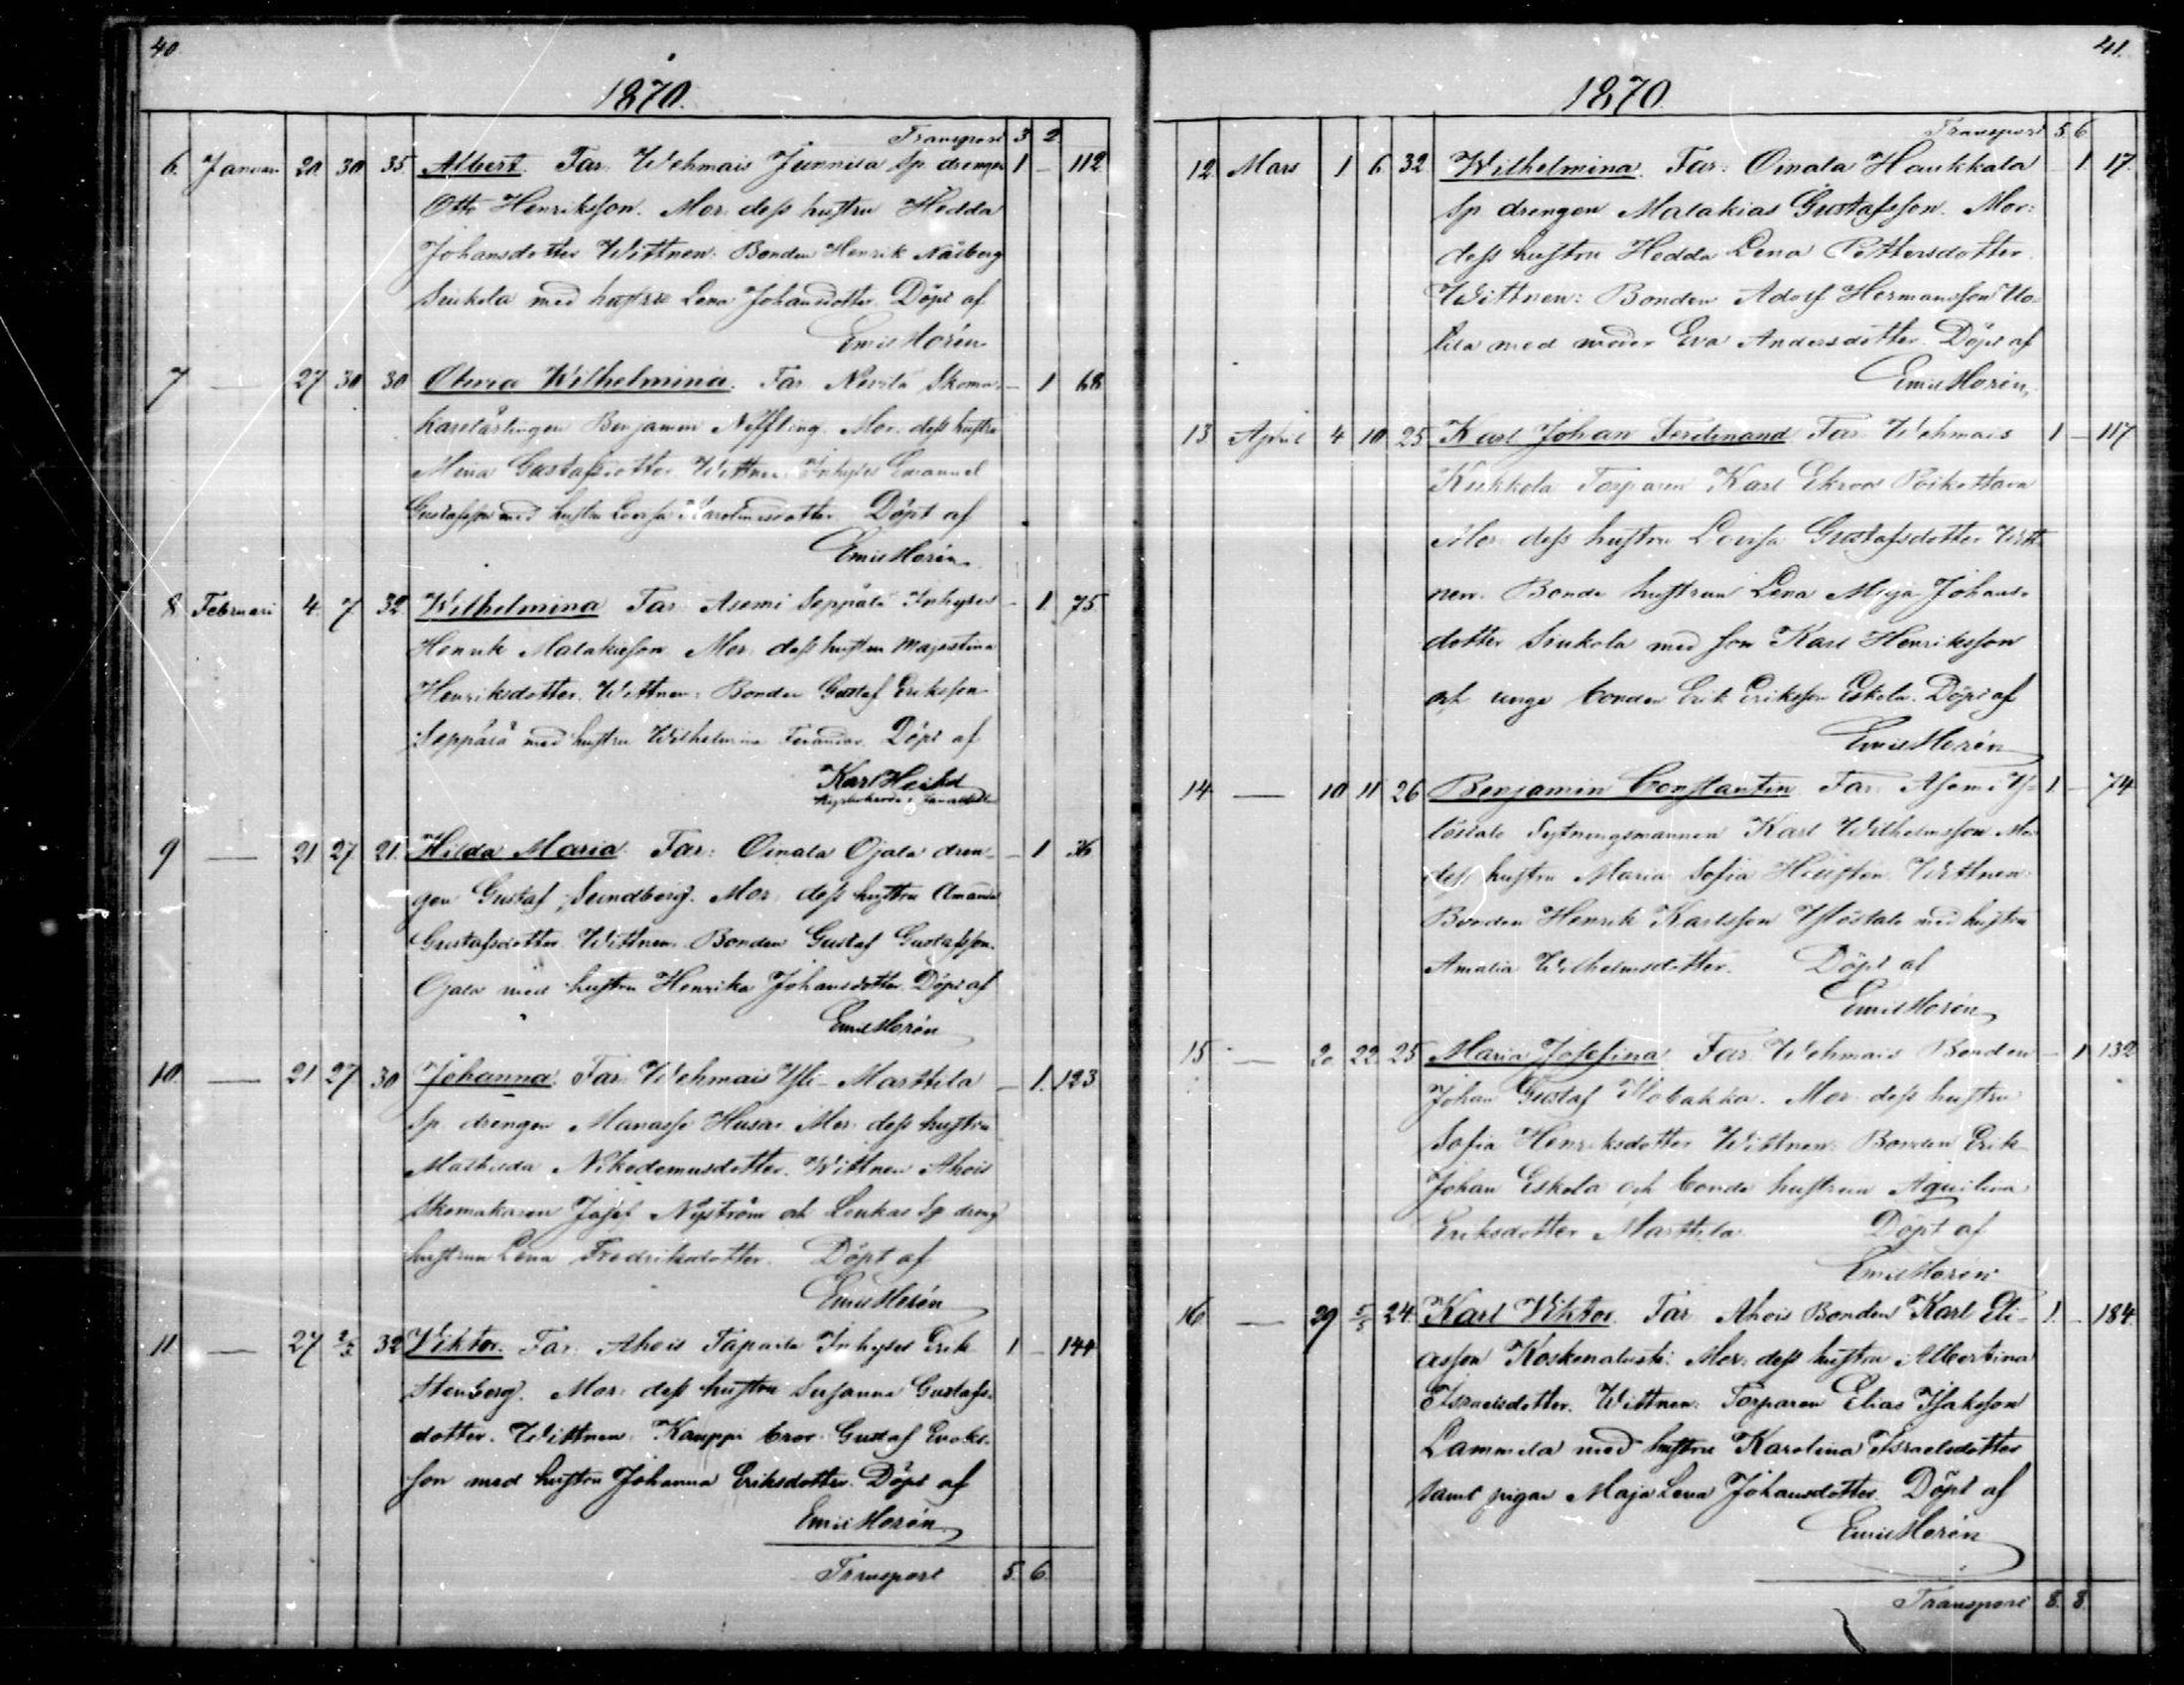 40.
1870.
Transport 3 2
6. Januari 20 30 35. Albert. Far: Wehmais Junnila Sp. drengen 1 – 112
Otto Henriksson. Mor: dess hustru Hedda
Johansdotter Wittnen: Bonden Henrik Nasberg
Sinkola med hustru Lena Johansdotter. Döpt af
Emil Horén
7 — 27 30 30 Otteria Wilhelmina. Far: Skoma- – 1 68
karelärlingen Benjamin Nyffling. Mor: dess hustru
Maria Gustafsdotter. Wittnen: Inhyses Emanuel
Gustafsson med hustru Lovisa Karolinasdotter Döpt af
Emil Horén
8. Februari 4. 7 32. Wilhelmina Far: Asemi Seppälä Inhyses – 1. 75
Henrik Malakiesson Mor: dess hustru Majastina
Henriksdotter. Wittnen: Bonden Gustaf Eriksson
Seppälä med hustru Wilhelmina Döpt af
Karl Heikel
9 — 21 27 21. Hilda Maria. Far: Oinala Ojala dren- – 1 36
gen Gustaf Sundberg. Mor: dess hustru Amanda
Gustafsdotter. Wittnen: Bonden Gustaf Gustafsson
Ojala med hustru Henrika Johansdotter. Döpt af
Emil Horén
10. — 21 27 30 Johanna. Far: Wehmais Yli-Marttila – 1. 123
Sp. drengen Manasse Husar Mor: dess hustru
Mathilda Nikodemusdotter. Wittnen Ahois
Skomakaren Josef Nyström och Leukas Sp. dreng
hustrun Lena Fredriksdotter. Döpt af
Emil Horén
11 — 27 2/3 32 Viktor. Far: Ahois Tapaila Inhyses Erik 1 – 144
Stenberg. Mor: dess hustru Susanna Gustafs-
dotter. Wittnen: Kauppi bror Gustaf Eriks-
son med hustru Johanna Eriksdotter. Döpt af
Emil Horén
Transport 5. 6.
41.
1870
Transport 5. 6.
12 Mars 1 6 32 Wilhelmina. Far: Oinala Haukkala – 1 17.
Sp. drengen Malakias Gustafsson. Mor:
dess hustru Hedda Lena Pettersdotter.
Wittnen: Bonden Adolf Hermansson Uo-
tila med moder Eva Andersdotter. Döpt af
Emil Horén
13 April 4 10 25 Karl Johan Ferdinand Far: Wehmais 1 – 117
Kukkola Torparen Karl Ekrood
Mor: dess hustru Lovisa Gustafsdotter Witt-
nen. Bonde hustrun Lena Maja Johans-
dotter Sinkola med son Karl Henriksson
och unge bonden Erik Eriksson Eskola. Döpt af
Emil Horén
14 — 10 11 26 Benjamin Constantin Far: Asemi Y- 1 – 74
löstalo Sytningsmannen Karl Wilhelmsson Mor
dess hustru Maria Sofia Wittnen
Bonden Henrik Karlsson Ylöstalo med hustru
Amalia Wilhelmsdotter. Döpt af
Emil Horén
15 — 20. 22. 25 Maria Josefina. Far: Wehmais Bonden – 1 132
Johan Gustaf Mor: dess hustru
Sofia Henriksdotter Wittnen: Bonden Erik
Johan Eskola och bonde hustrun Aquilina
Eriksdotter Marttila. Döpt af
Emil Horén
16 — 29 5/5 24. Karl Viktor. Far: Ahois Bonden Karl Eli- 1. – 184.
asson Koskenalusta: Mor: dess hustru Albertina
Israelsdotter. Wittnen: Torparen Elias Isaksson
Lammila med hustru Karolina Israelsdotter
samt pigan Maja Lena Johansdotter. Döpt af
Emil Horén
Transport 8. 8.